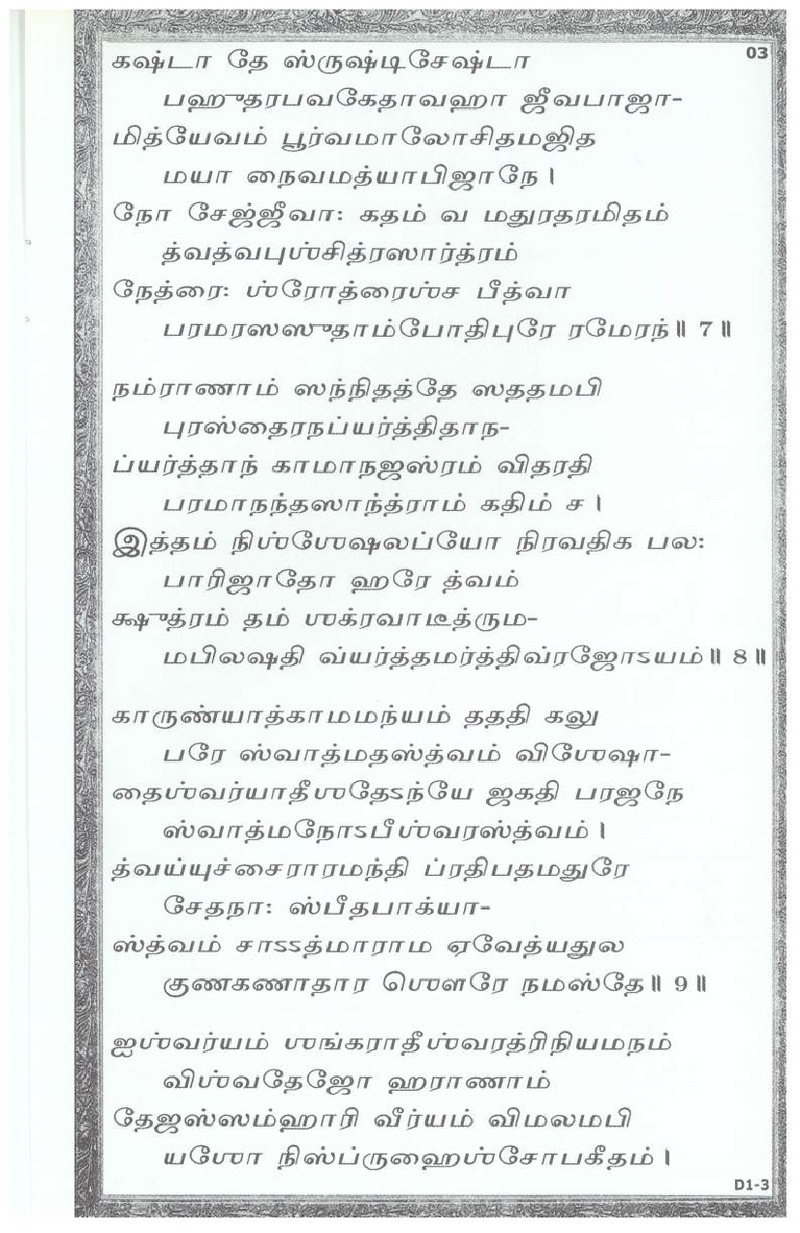 03
கஷ்டா தே ஸ்ருஷ்டிசேஷ்டா
பஹுதரபவகேதாவஹா ஜீவபாஜா-
மித்யேவம் பூர்வமாலோசிதமஜித
மயா நைவமத்யாபிஜாநே।
நோ சேஜ்ஜீவா: கதம் வ மதுரதரமிதம்
த்வத்வபுஶ்சித்ரஸார்த்ரம்
நேத்ரை: ஶ்ரோத்ரைஶ்ச பீத்வா
பரமரஸஸுதாம்போதிபுரே ரமேரந்॥ 7॥
நம்ராணாம் ஸந்நிதத்தே ஸததமபி
புரஸ்தைரநப்யர்த்திதாந-
ப்யர்த்தாந் காமாநஜஸ்ரம் விதரதி
பரமாநந்தஸாந்த்ராம் கதிம் ச।
இத்தம் நிஶ்ஶேஷலப்யோ நிரவதிக பல:
பாரிஜாதோ ஹரே த்வம்
க்ஷுத்ரம் தம் ஶக்ரவாடீத்ரும-
மபிலஷதி வ்யர்த்தமர்த்திவ்ரஜோऽயம்॥ 8॥
காருண்யாத்காமமந்யம் தததி கலு
பரே ஸ்வாத்மதஸ்த்வம் விஶேஷா-
தைஶ்வர்யாதீஶதேऽந்யே ஜகதி பரஜநே
ஸ்வாத்மநோऽபீஶ்வரஸ்த்வம்।
த்வய்யுச்சைராரமந்தி ப்ரதிபதமதுரே
சேதநா: ஸ்பீதபாக்யா-
ஸ்த்வம் சாऽऽத்மாராம ஏவேத்யதுல
குணகணாதார ஶௌரே நமஸ்தே॥ 9॥
ஐஶ்வர்யம் ஶங்கராதீஶ்வரத்ரிநியமநம்
விஶ்வதேஜோ ஹராணாம்
தேஜஸ்ஸம்ஹாரி வீர்யம் விமலமபி
யஶோ நிஸ்ப்ருஹைஶ்சோபகீதம்।
D1-3